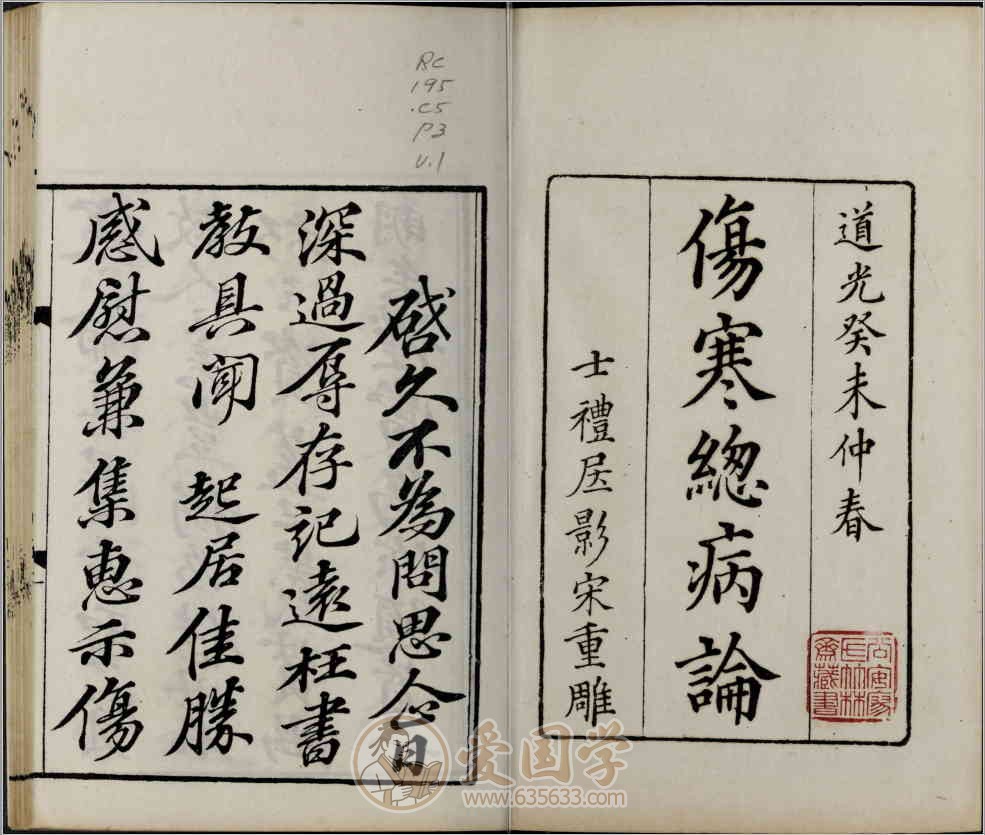 道光癸未仲春
傷寒緫病論
士禮居影宋重雕
RC
195
.C5
P3
V.1
啓久不為問思企日
深過辱存記遠枉書
教具聞 起居佳勝
感慰兼集惠示傷
爱国学
www.635633.com